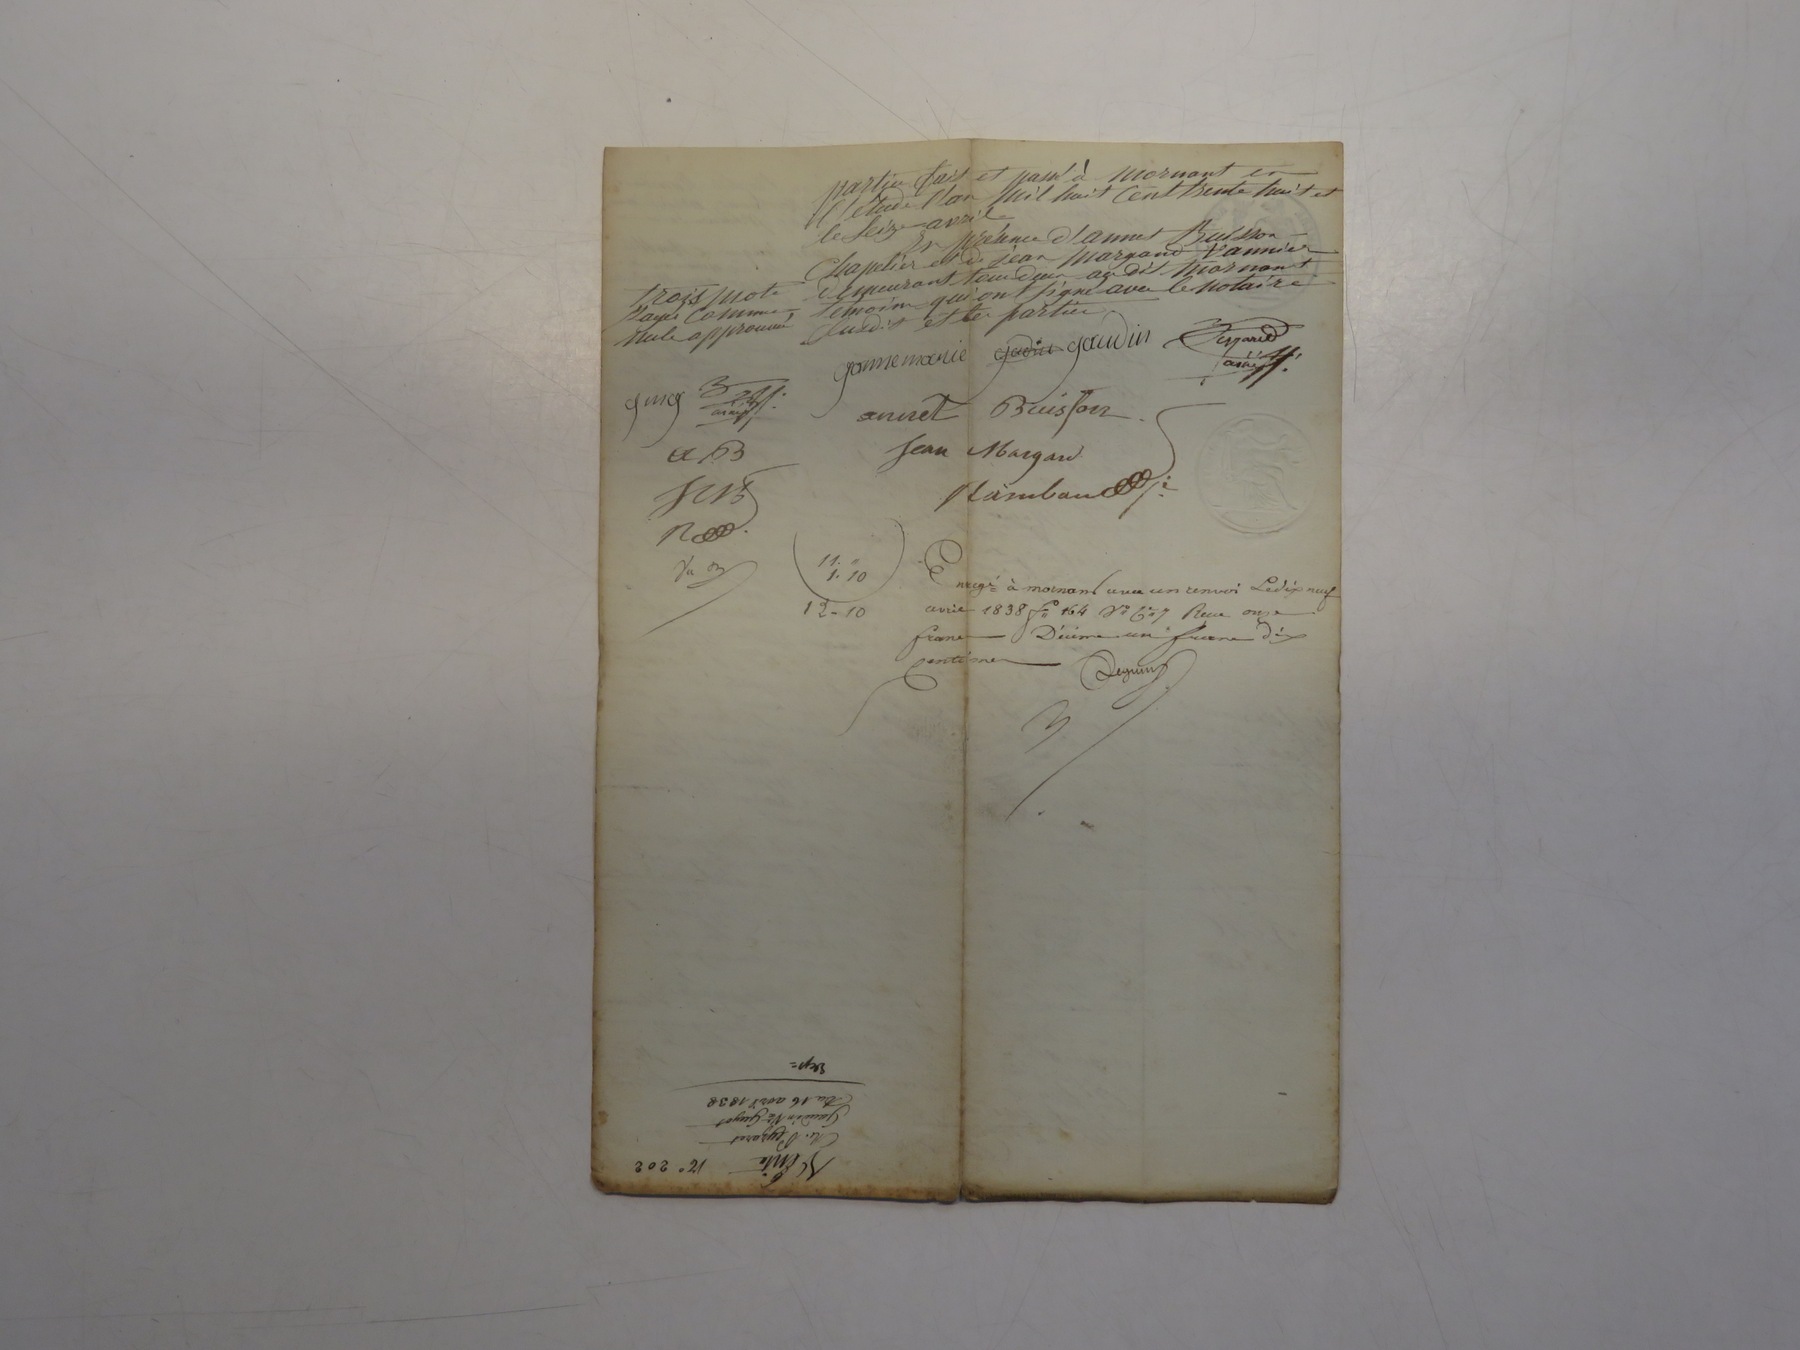 partie fait et passé à mornant en
l'étude l'an mil huit cent trente huit et
le seize avril
En présence d'annet Buisson
Chapelier et de jean Margand vannier
demeurant tous deux au dit mornant
témoins qui ont signé avec le notaire
susdit et les parties
trois mots
rayés comme
nuls approuvés
janne marie gaudin gaudin
annet Buisson
jean Margand
Rambaud
a B
11. "
1. 10
12 - 10
Enregé à mornant avec un renvoi Le dix neuf
avril 1838 fo 164 Vo Cse 7 Reçu onze
francs Décime un franc dix
centimes
No 202
Vente
Peyzaret
Gaudin Ve Guyot
Du 16 avril 1838
exp=